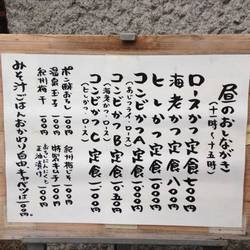 昼のおしながき
(十一時〜十五時)
ロースかつ定食 七〇〇円
海老かつ定食 八〇〇円
ヒレかつ定食 一〇〇〇円
コンビかつA定食 一〇〇〇円
(あじフライ・ロース)
コンビかつB定食 一〇五〇円
(海老かつ・ロース)
コンビかつC定食 一一〇〇円
(ヒレかつ・ロース)
ポン酢おろし 一〇〇円
温泉玉子 一〇〇円
紀州梅干 一〇〇円
紀州梅じそ 一〇〇円
特製キムチ 一〇〇円
正油漬け 一〇〇円
みそ汁ごはんおかわり自由 キャベツは一〇〇円